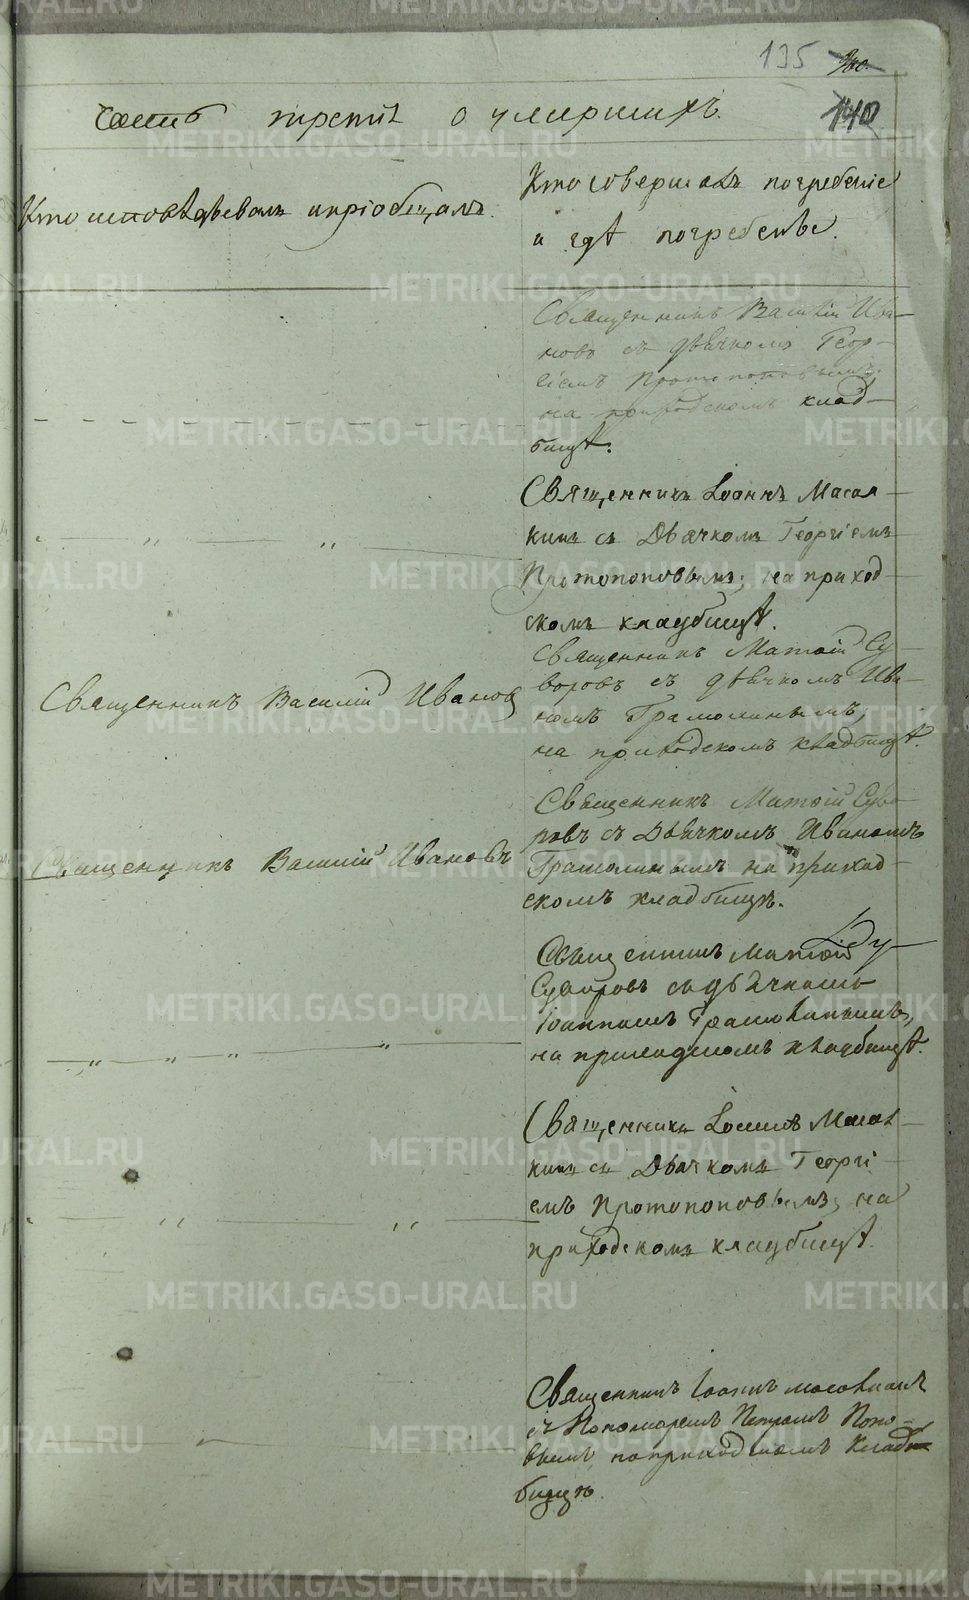 135
140
Часть третія о умершихъ.
Кто исповѣдывалъ и пріобщалъ.
Кто совершалъ погребеніе
и гдѣ погребены.
Священникъ Василій Ива-
новъ съ дьячкомъ Геор-
гіемъ Протопоповымъ
на приходскомъ клад-
бищѣ.
Священникъ Іоаннъ Масал-
кинъ съ Дьячкомъ Георгіемъ
Протопоповымъ, на приход-
скомъ кладбищѣ.
Священникъ Василій Ивановъ
Священникъ Матѳій Су-
воровъ съ дьячкомъ Ива-
номъ Грамолинымъ,
на приходскомъ кладбищѣ.
Священникъ Василій Ивановъ
Священникъ Матѳій Суво-
ровъ съ Дьячкомъ Иваномъ
Грамолинымъ на приход-
скомъ кладбищѣ.
Священникъ Матѳій
Суворовъ съ дьячкомъ
Іоанномъ Грамолинымъ,
на приходскомъ кладбищѣ.
Священникъ Іоаннъ Масал-
кинъ съ Дьячкомъ Георгі-
емъ Протопоповымъ, на
приходскомъ кладбищѣ.
Священникъ Іоаннъ
съ Пономаремъ Петромъ Попо-
вымъ на приходскомъ Клад-
бищѣ.
METRIKI.GASO-URAL.RU